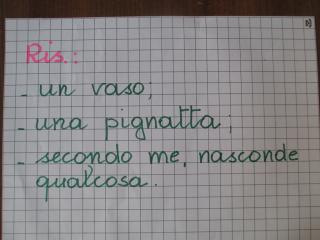 Ris.:
- un vaso;
- una pignatta;
- secondo me, nasconde
qualcosa.